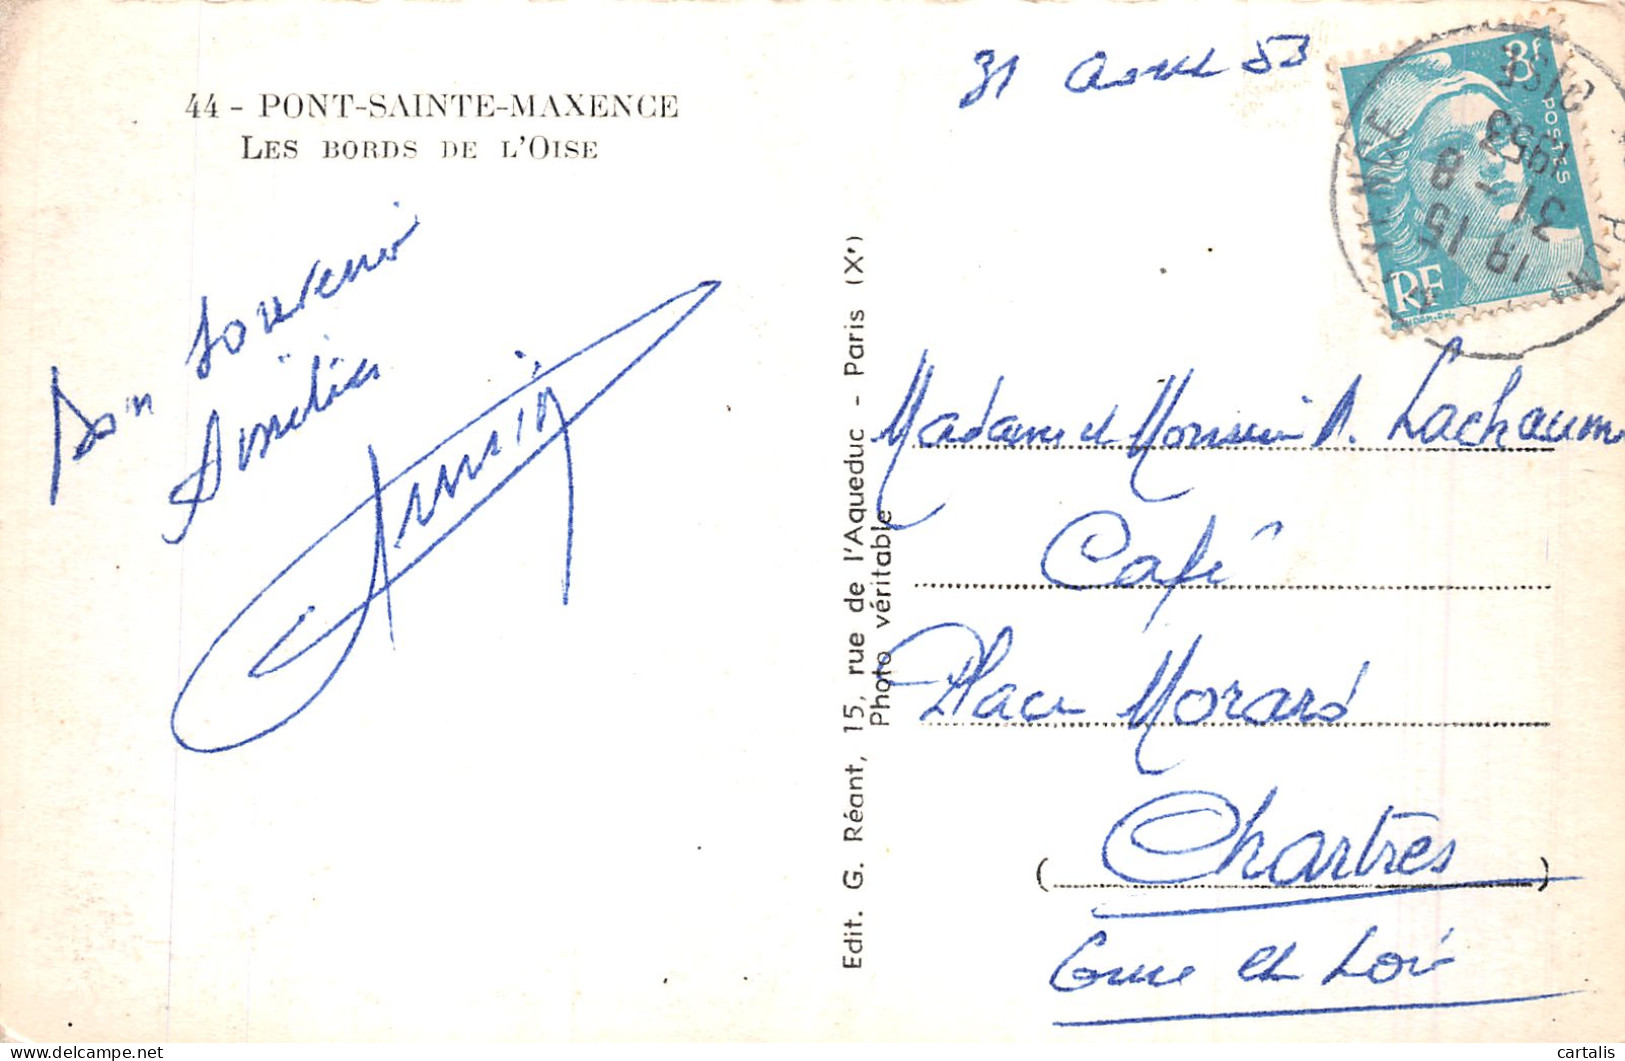 44 - PONT-SAINTE-MAXENCE
LES BORDS DE L'OISE
31 août 53
8f
POSTES
RF
18 15
31 - 8
1953
OISE
Bon Souvenir
Amitiés
Edit. G. Réant, 15, rue de l'Aqueduc - Paris (Xe)
Photo véritable
Madame et Monsieur A. Lachaume
Café
Place Morard
(Chartres)
Eure et Loir
cartalis